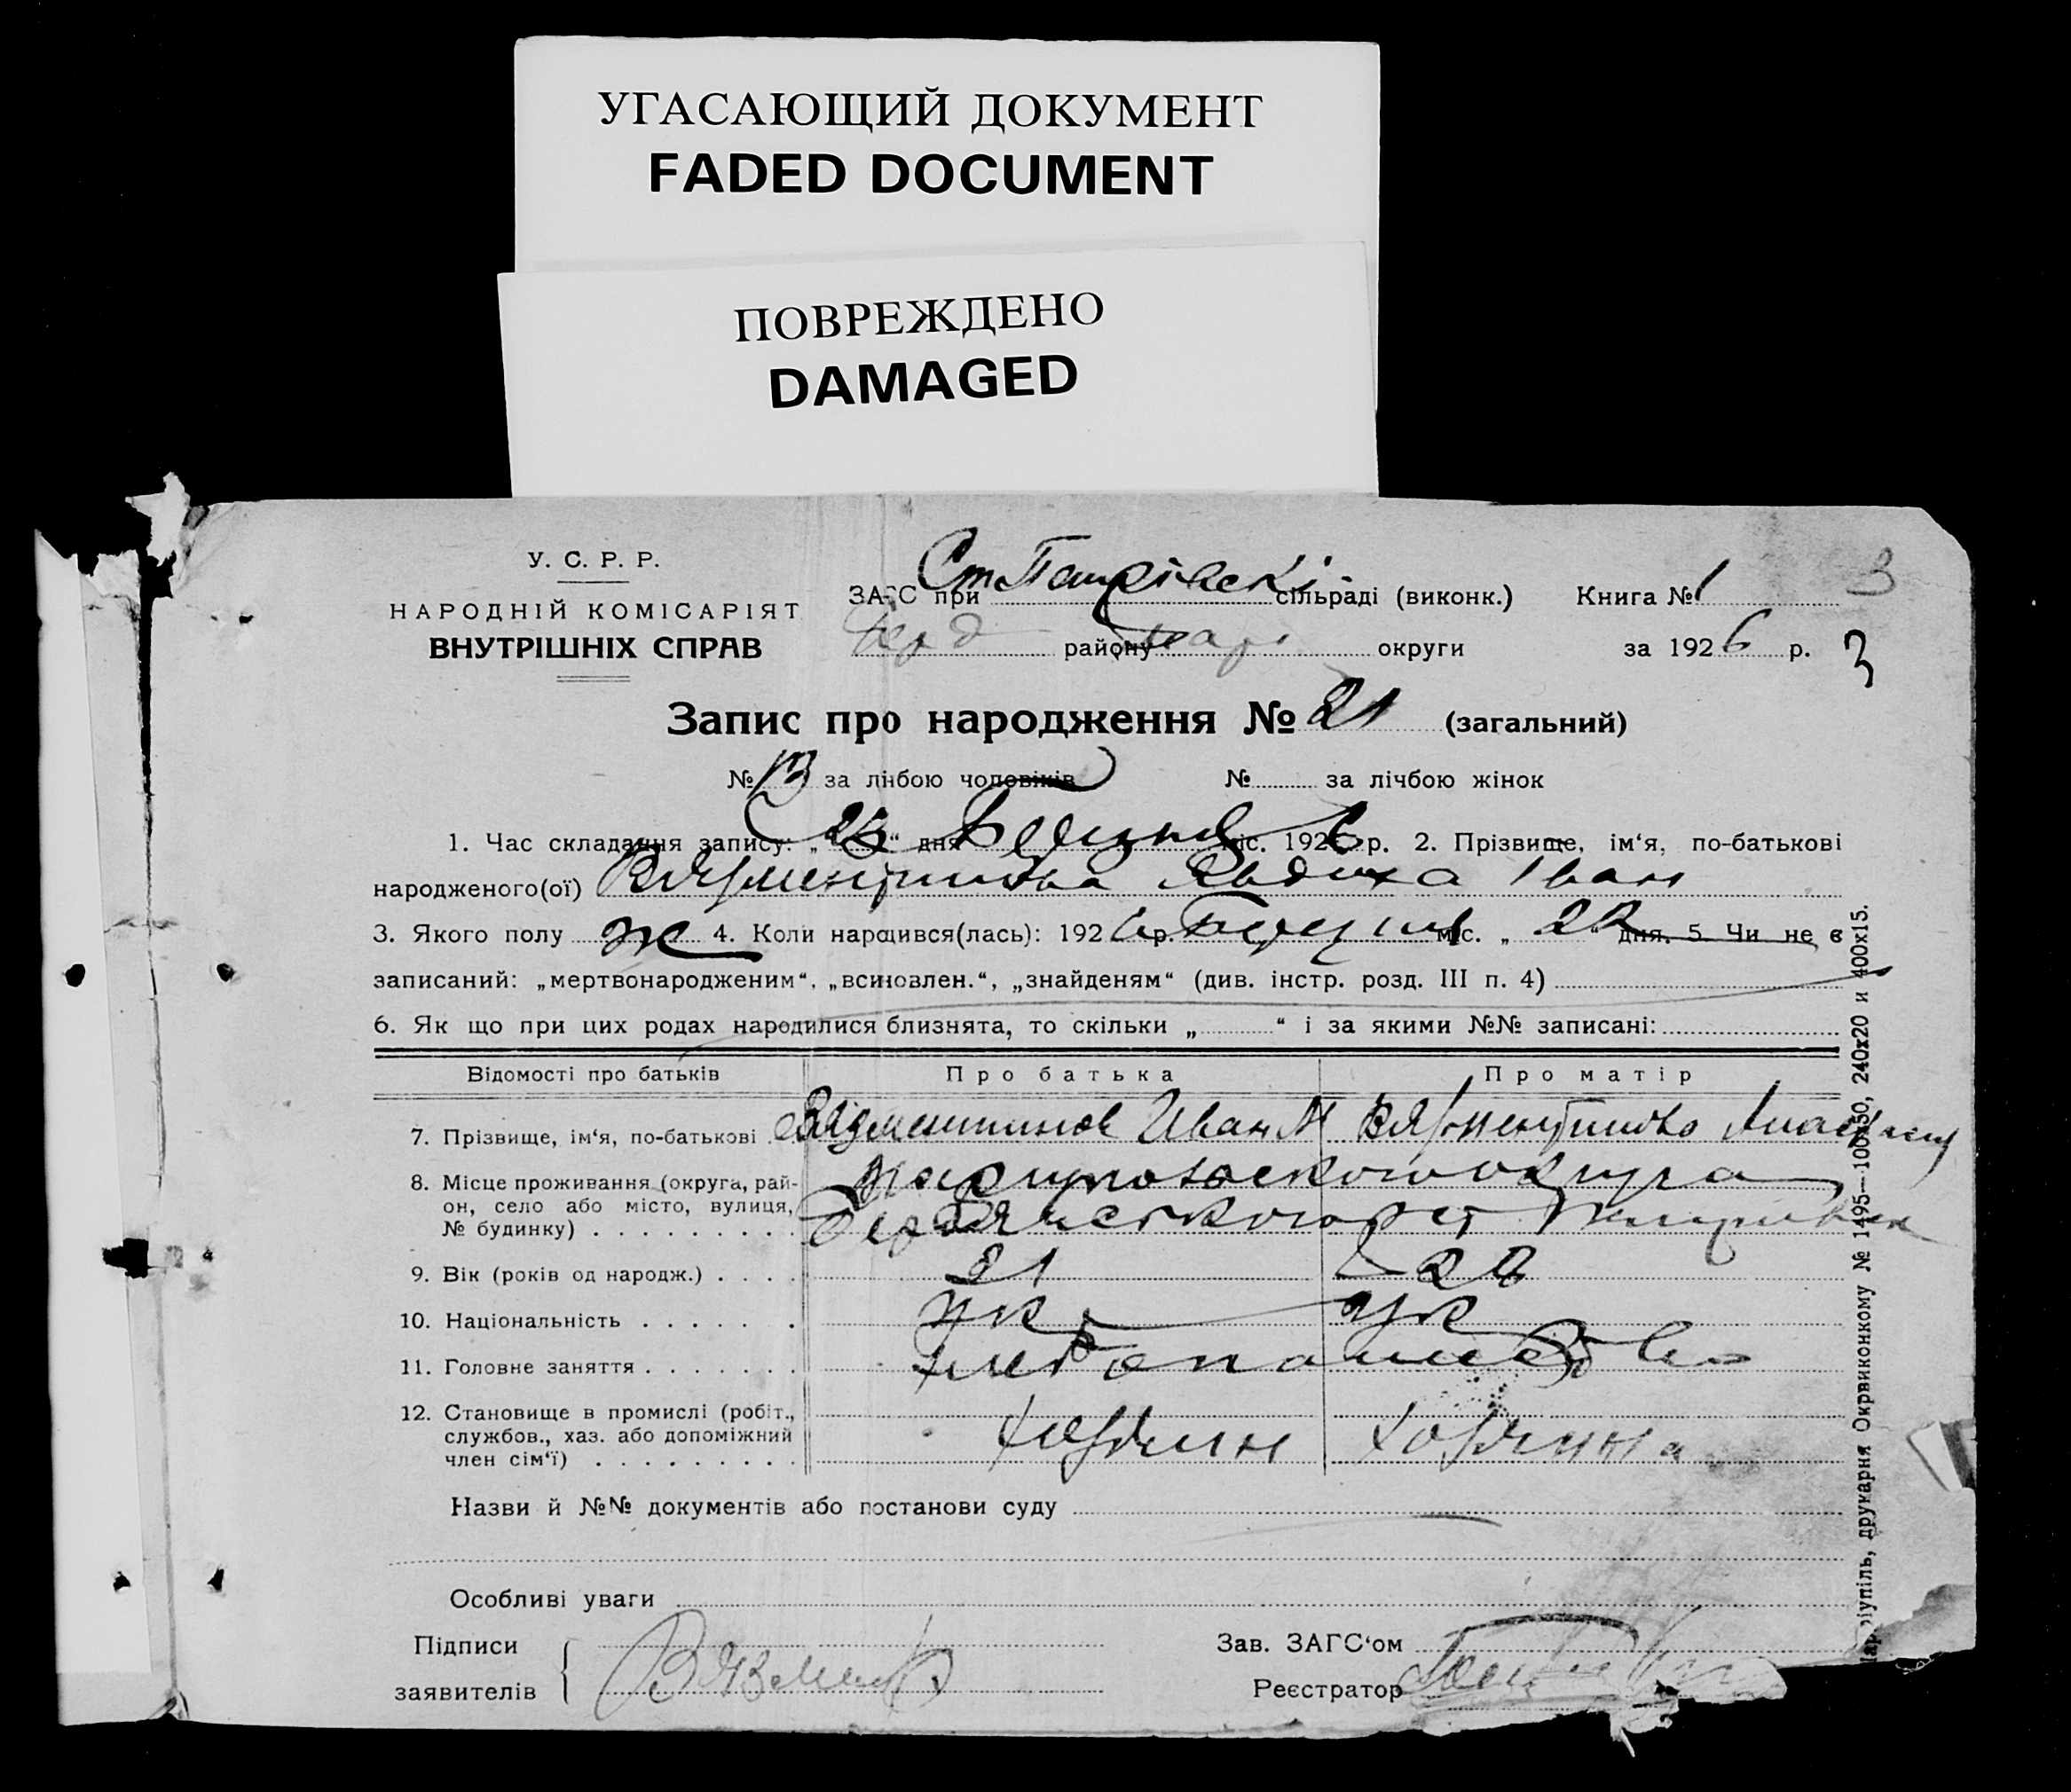 УГАСАЮЩИЙ ДОКУМЕНТ
FADED DOCUMENT
ПОВРЕЖДЕНО
DAMAGED
У. С. Р. Р.
НАРОДНІЙ КОМІСАРІЯТ
ВНУТРІШНІХ СПРАВ
ЗАГС при сільраді (виконк.) Книга № 1 3
району округи за 1926 р. 3
Запис про народження № 21 (загальний)
№ 13 за лічбою чоловіків № за лічбою жінок
1. Час складання запису: „ “ дня міс. 1926 р. 2. Прізвище, ім‘я, по-батькові
народженого(ої) Іван
3. Якого полу ж 4. Коли народився(лась): 1926 р. міс. „ 22 дня. 5. Чи не є
записаний: „мертвонародженим“, „всиновлен.“, „знайденям“ (див. інстр. розд. III п. 4)
6. Як що при цих родах народилися близнята, то скільки „ “ і за якими №№ записані:
Відомості про батьків Про батька Про матір
7. Прізвище, ім‘я, по-батькові Иван М
8. Місце проживання (округа, рай-
он, село або місто, вулиця,
№ будинку)
Мариупольского округа
9. Вік (років од народж.)
10. Національність ук ук
11. Головне заняття хлебопашество
12. Становище в промислі (робіт.,
службов., хаз. або допоміжний
член сім‘ї)
хозяин хозяйна
Назви й №№ документів або постанови суду
Особливі уваги
Підписи
заявителів
Зав. ЗАГС‘ом
Реєстратор
Маріупіль, друкарня Окрвиконкому № 1495—100х50, 240х20 и 400х15.